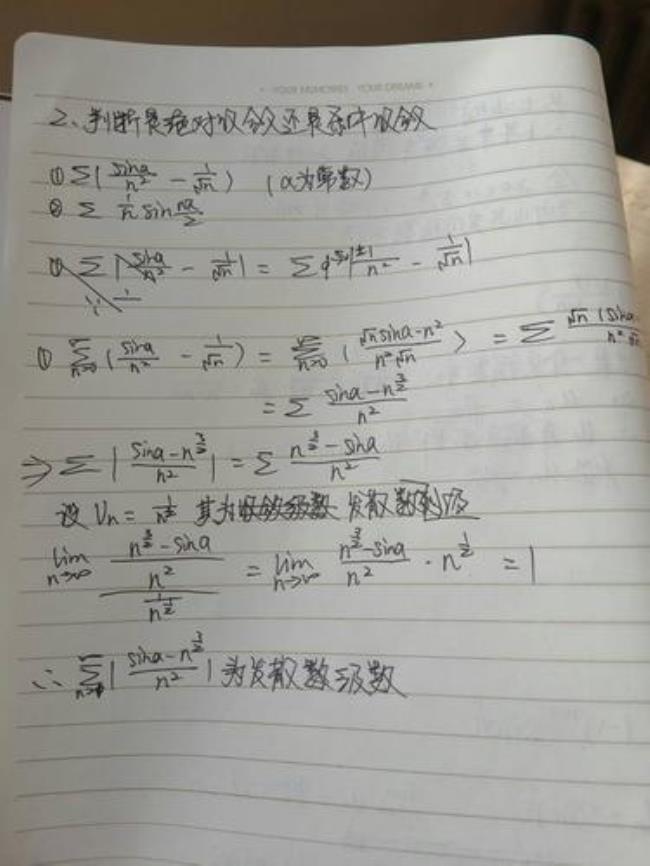 YOUR MEMORIES YOUR DREAMS
2、判断是绝对收敛还是条件收敛
① Σ(sina/n² - 1/√n) (a为常数)
② Σ 1/n sin na/2
① Σ|sina/n² - 1/√n| = Σ |±1/n² - 1/√n|
∵ 1
① Σ_{n=0}^{∞}(sina/n² - 1/√n) = Σ_{n=0}^{∞}(√n sina - n²/n²√n) = Σ √n(sina-
= Σ sina - n^{3/2}/n²
⇒ Σ|sina - n^{3/2}/n²| = Σ n^{3/2} - sina/n²
设 Un = 1/n^{1/2} 其为收敛级数 发散数列级
lim_{n→∞} (n^{3/2} - sina/n²)/(1/n^{1/2}) = lim_{n→∞} n^{3/2} - sina/n² · n^{1/2} = 1
∴ Σ|sina - n^{3/2}/n²| 为发散数级数